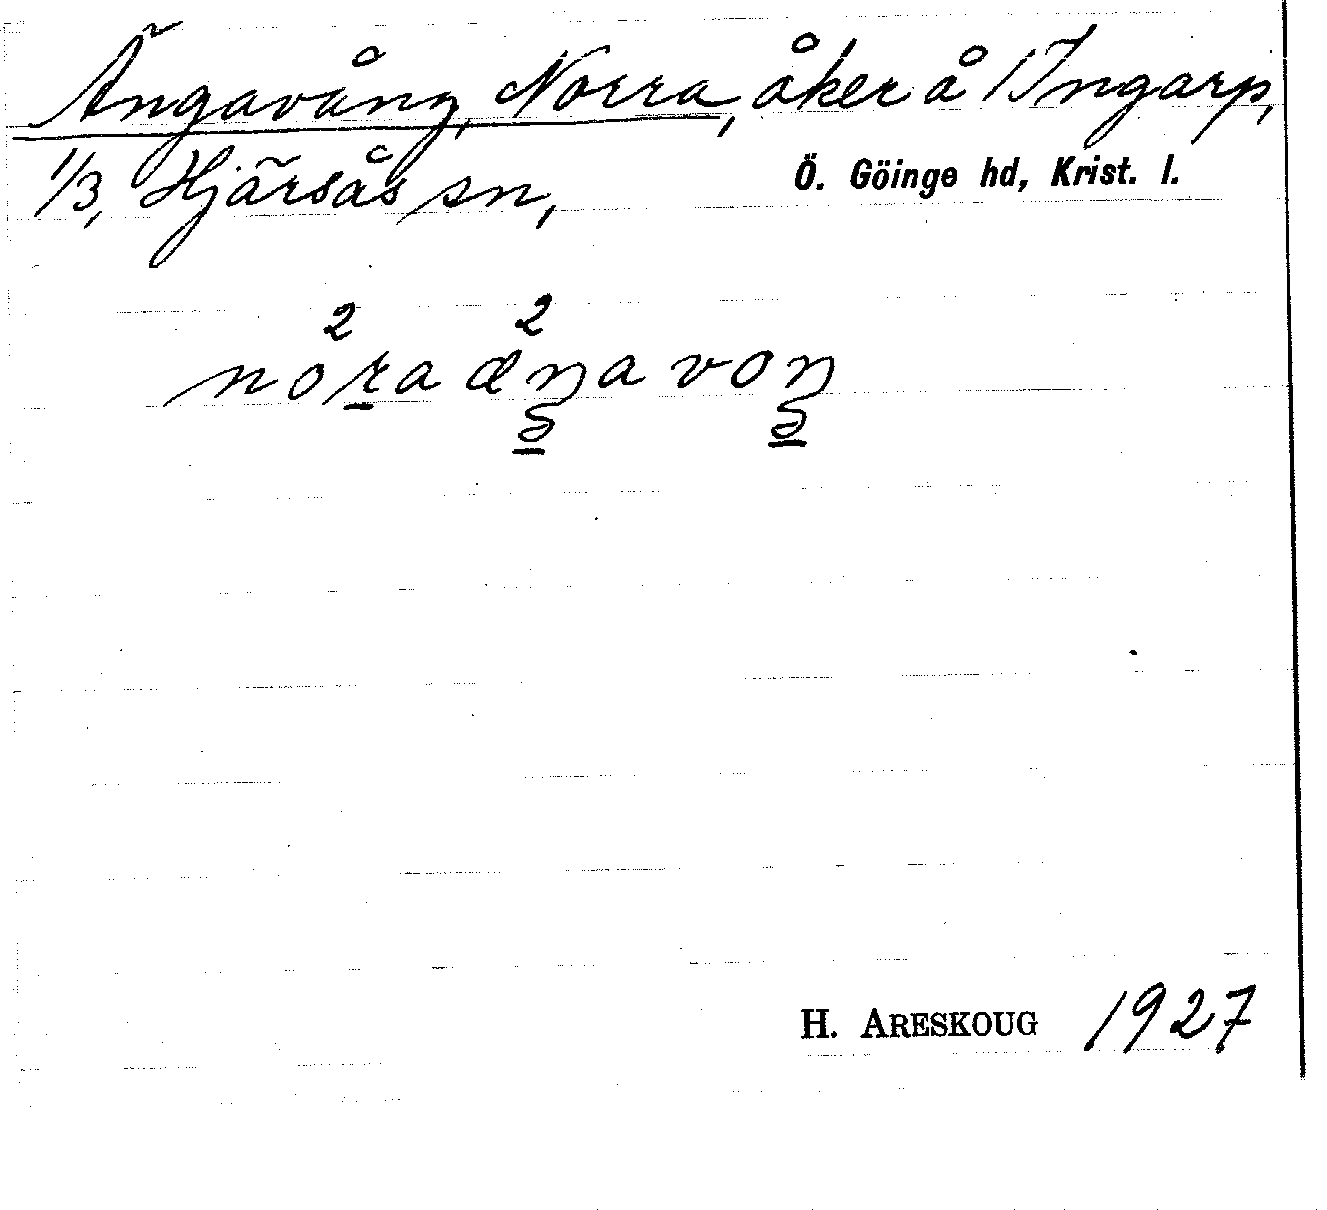 Ängavång, Norra, åker å 1 Ingarp,
1/3, Hjärsås sn, Ö. Göinge hd, Krist. l.
H. ARESKOUG 1927